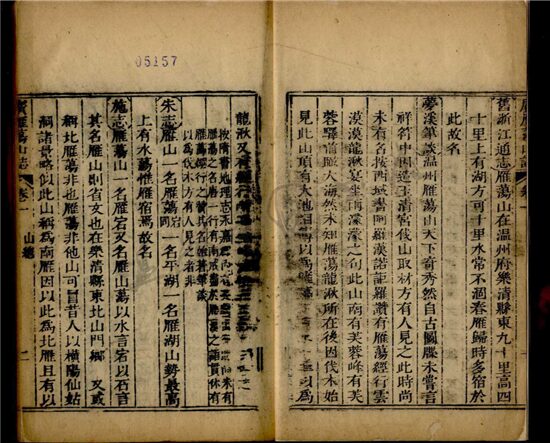 05157
舊浙江通志雁蕩山在溫州府樂清縣東九十里高四
十里上有湖方可十里水常不涸春雁歸時多宿於
此故名
夢溪筆談溫州雁蕩山天下奇秀然自古圖牒未嘗言
祥符中因造玉清宮伐山取材方有人見之此時尚
未有名按西域書阿羅漢諾詎羅讚有雁蕩經行雲
漠漠龍湫宴坐雨濛濛之句此山南有芙蓉峰有芙
蓉驛前瞰大海然未知雁蕩龍湫所在後因伐木始
見此山頂有大池相以為以為
龍湫又有經行
按隋書地理志永嘉未有
雁蕩之名唐一行有南戒盡於雁蕩之語貫休有
雁蕩經行之讚其名雅著筆談
以為伐木方有人見之者非
朱志雁山一名雁蕩一名平湖一名雁湖山勢最高
上有水蕩惟雁宿焉故名
施志雁蕩山一名雁岩又名雁山蕩以水言宕以石言
其名雁山則省文也在樂清縣東北山門鄉 又或
稱北雁蕩非也雁蕩非他山可冒昔人以橫陽仙姑
洞諸峰略似此山稱為南雁因以此為北雁且有以
廣雁蕩山志 卷一 山總 二